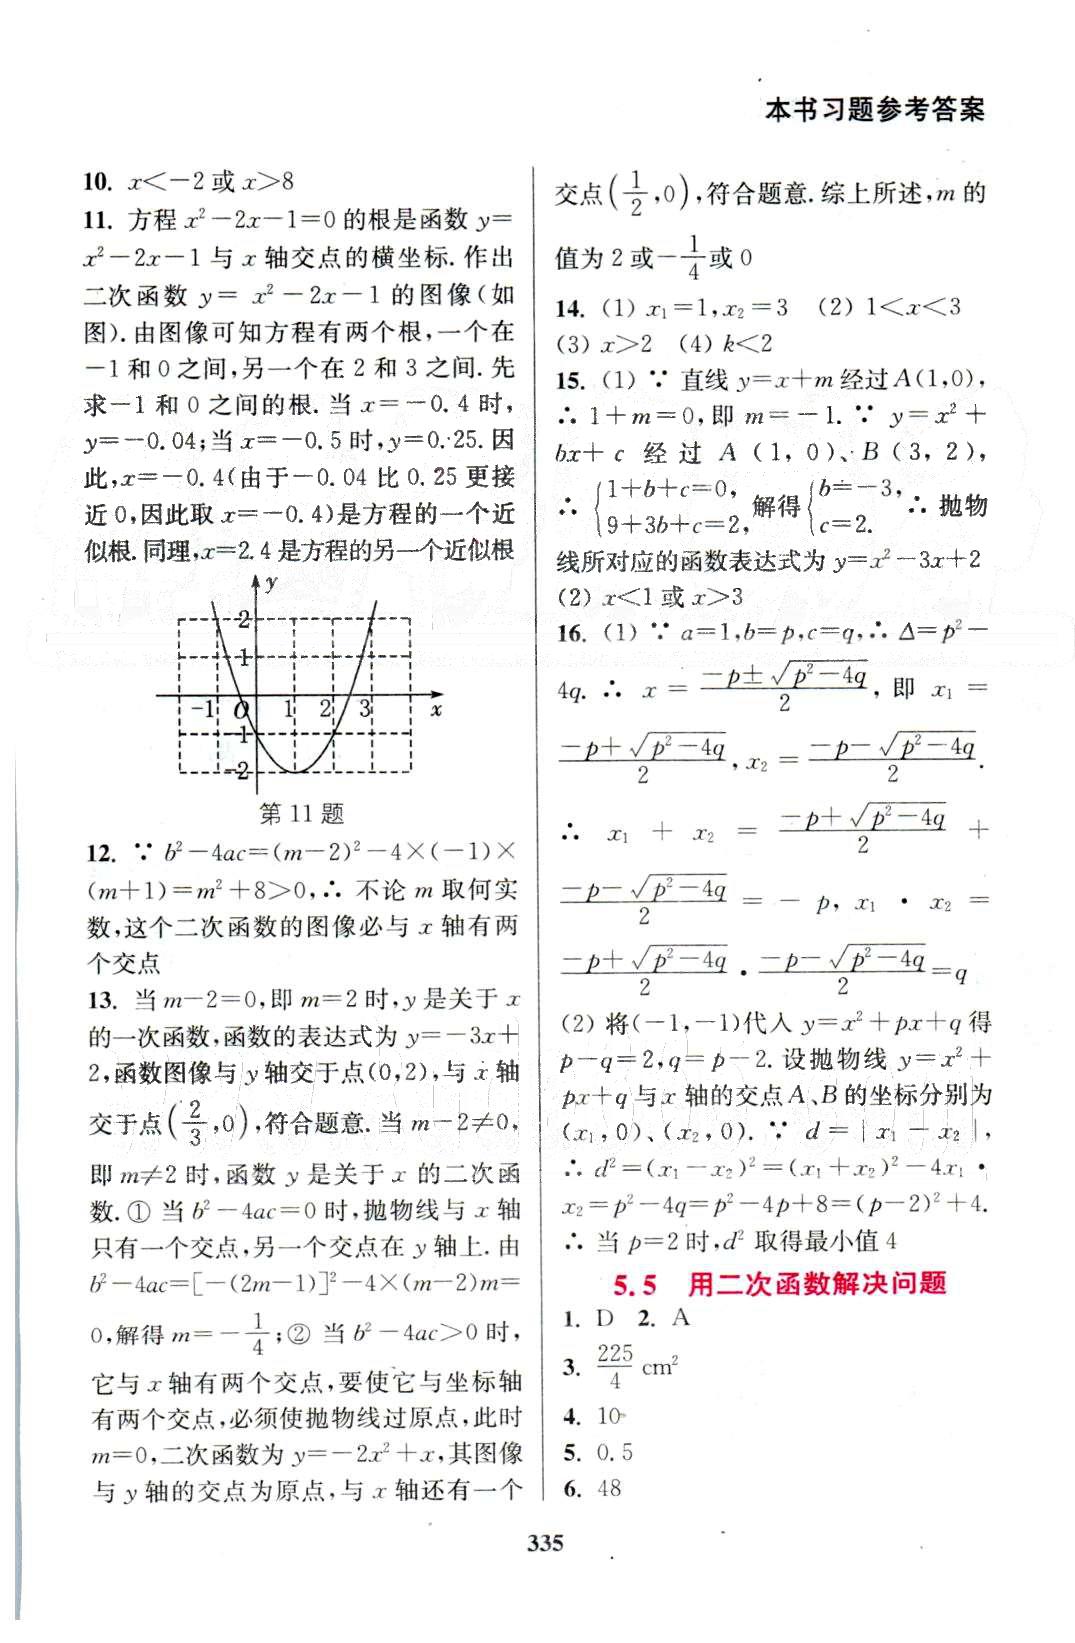 本书习题参考答案
10. x<-2或x>8
11. 方程x²-2x-1=0的根是函数y=
x²-2x-1与x轴交点的横坐标. 作出
二次函数 y= x²-2x-1的图像(如
图).由图像可知方程有两个根,一个在
-1和0之间,另一个在2和3之间. 先
求-1和0之间的根. 当x=-0.4时,
y=-0.04;当x=-0.5时,y=0.25. 因
此,x=-0.4(由于-0.04比0.25更接
近0,因此取x=-0.4)是方程的一个近
似根.同理,x=2.4是方程的另一个近似根
y
2
1
-1 O 1 2 3 x
-1
-2
第11题
12. ∵ b²-4ac=(m-2)²-4×(-1)×
(m+1)=m²+8>0,∴ 不论m取何实
数,这个二次函数的图像必与x轴有两
个交点
13. 当m-2=0,即m=2时,y是关于x
的一次函数,函数的表达式为y=-3x+
2,函数图像与y轴交于点(0,2),与x轴
交于点(2/3,0),符合题意. 当m-2≠0,
即m≠2时,函数y是关于x的二次函
数.① 当b²-4ac=0时,抛物线与x轴
只有一个交点,另一个交点在y轴上. 由
b²-4ac=[-(2m-1)]²-4×(m-2)m=
0,解得m=-1/4;② 当b²-4ac>0时,
它与x轴有两个交点,要使它与坐标轴
有两个交点,必须使抛物线过原点,此时
m=0,二次函数为y=-2x²+x,其图像
与y轴的交点为原点,与x轴还有一个
交点(1/2,0),符合题意. 综上所述,m的
值为2或-1/4或0
14. (1) x₁=1,x₂=3 (2) 1<x<3
(3) x>2 (4) k<2
15. (1) ∵ 直线y=x+m经过A(1,0),
∴ 1+m=0,即m=-1. ∵ y=x²+
bx+c 经过 A(1,0)、B(3,2),
∴ {1+b+c=0, 9+3b+c=2, 解得 {b=-3, c=2. ∴ 抛物
线所对应的函数表达式为y=x²-3x+2
(2) x<1或x>3
16. (1) ∵ a=1,b=p,c=q,∴ Δ=p²-
4q. ∴ x = (-p±√(p²-4q))/2, 即 x₁ =
(-p+√(p²-4q))/2, x₂ = (-p-√(p²-4q))/2.
∴ x₁ + x₂ = (-p+√(p²-4q))/2 +
(-p-√(p²-4q))/2 = -p, x₁ · x₂ =
(-p+√(p²-4q))/2 · (-p-√(p²-4q))/2 =q
(2) 将(-1,-1)代入y=x²+px+q得
p-q=2,q=p-2. 设抛物线y=x²+
px+q与x轴的交点A、B的坐标分别为
(x₁,0)、(x₂,0). ∵ d=|x₁-x₂|,
∴ d²=(x₁-x₂)²=(x₁+x₂)²-4x₁·
x₂=p²-4q=p²-4p+8=(p-2)²+4.
∴ 当p=2时,d²取得最小值4
5.5 用二次函数解决问题
1. D 2. A
3. 225/4 cm²
4. 10
5. 0.5
6. 48
335